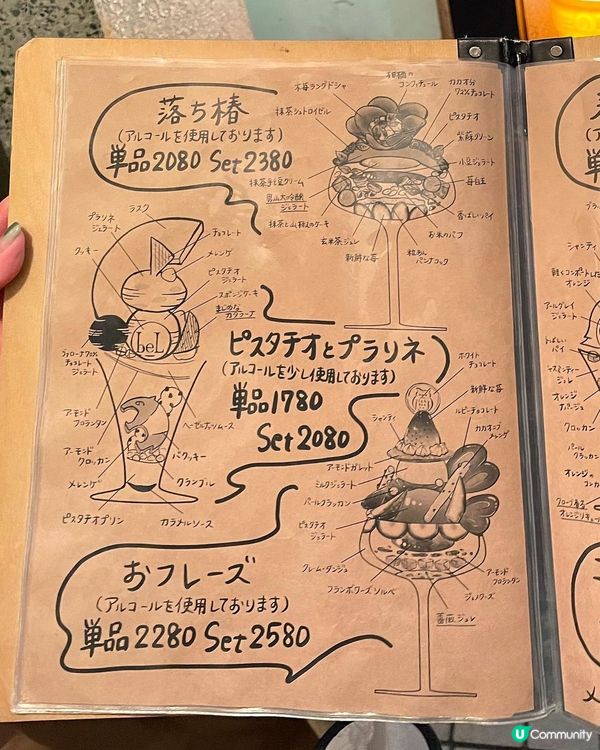 落ち椿
(アルコールを使用しております)
単品2080 Set2380
木苺ラングドシャ
コンフィチュール
カカオ分
72%チョコレート
抹茶シュトロイゼル
ピスタチオ
紫蘇グリーン
小豆ジェラート
抹茶生と豆クリーム
苺白玉
男山大吟醸
ジェラート
香ばしいパイ
抹茶と山椒のケーキ
お米のパフ
玄米茶ジュレ
新鮮な苺
パンナコッタ
ラスク
プラリネ
ジェラート
チョコレート
クッキー
メレンゲ
ピスタチオ
ジェラート
スポンジケーキ
まじめな
カタラーナ
beL
チョコレート
ジェラート
アーモンド
フロランタン
ヘーゼルナッツムース
アーモンド
クロッカン
パクッキー
メレンゲ
クランブル
ピスタチオプリン
カラメルソース
ピスタチオとプラリネ
(アルコールを少し使用しております)
単品1780
Set2080
ホワイト
チョコレート
新鮮な苺
シャンティ
ルビーチョコレート
カカオニブ
メレンゲ
アーモンドガレット
ミルクジェラート
パールクラッカン
ピスタチオ
ジェラート
クレーム・ダンジュ
アーモンド
フロランタン
フランボワーズソルベ
ジェノワーズ
薔薇ジュレ
おフレーズ
(アルコールを使用しております)
単品2280 Set2580
シャンティ
軽くコンポートした
オレンジ
アールグレイ
ジェラート
パイ
ジャスミンティー
ジュレ
オレンジ
パール
クラッカン
オレンジの
U Community